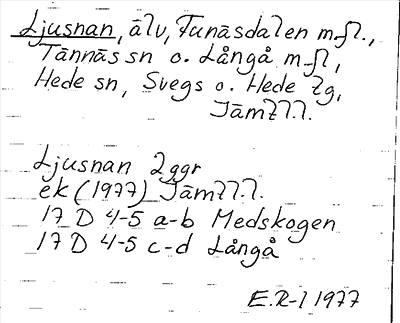 Ljusnan, älv, Funäsdalen m.fl.,
Tännäs sn o. Långå m.fl,
Hede sn, Svegs o. Hede tg,
Jämtl.l.
Ljusnan 2ggr
ek (1977) Jämtl.l.
17 D 4-5 a-b Medskogen
17 D 4-5 c-d Långå
E.R-l 1977